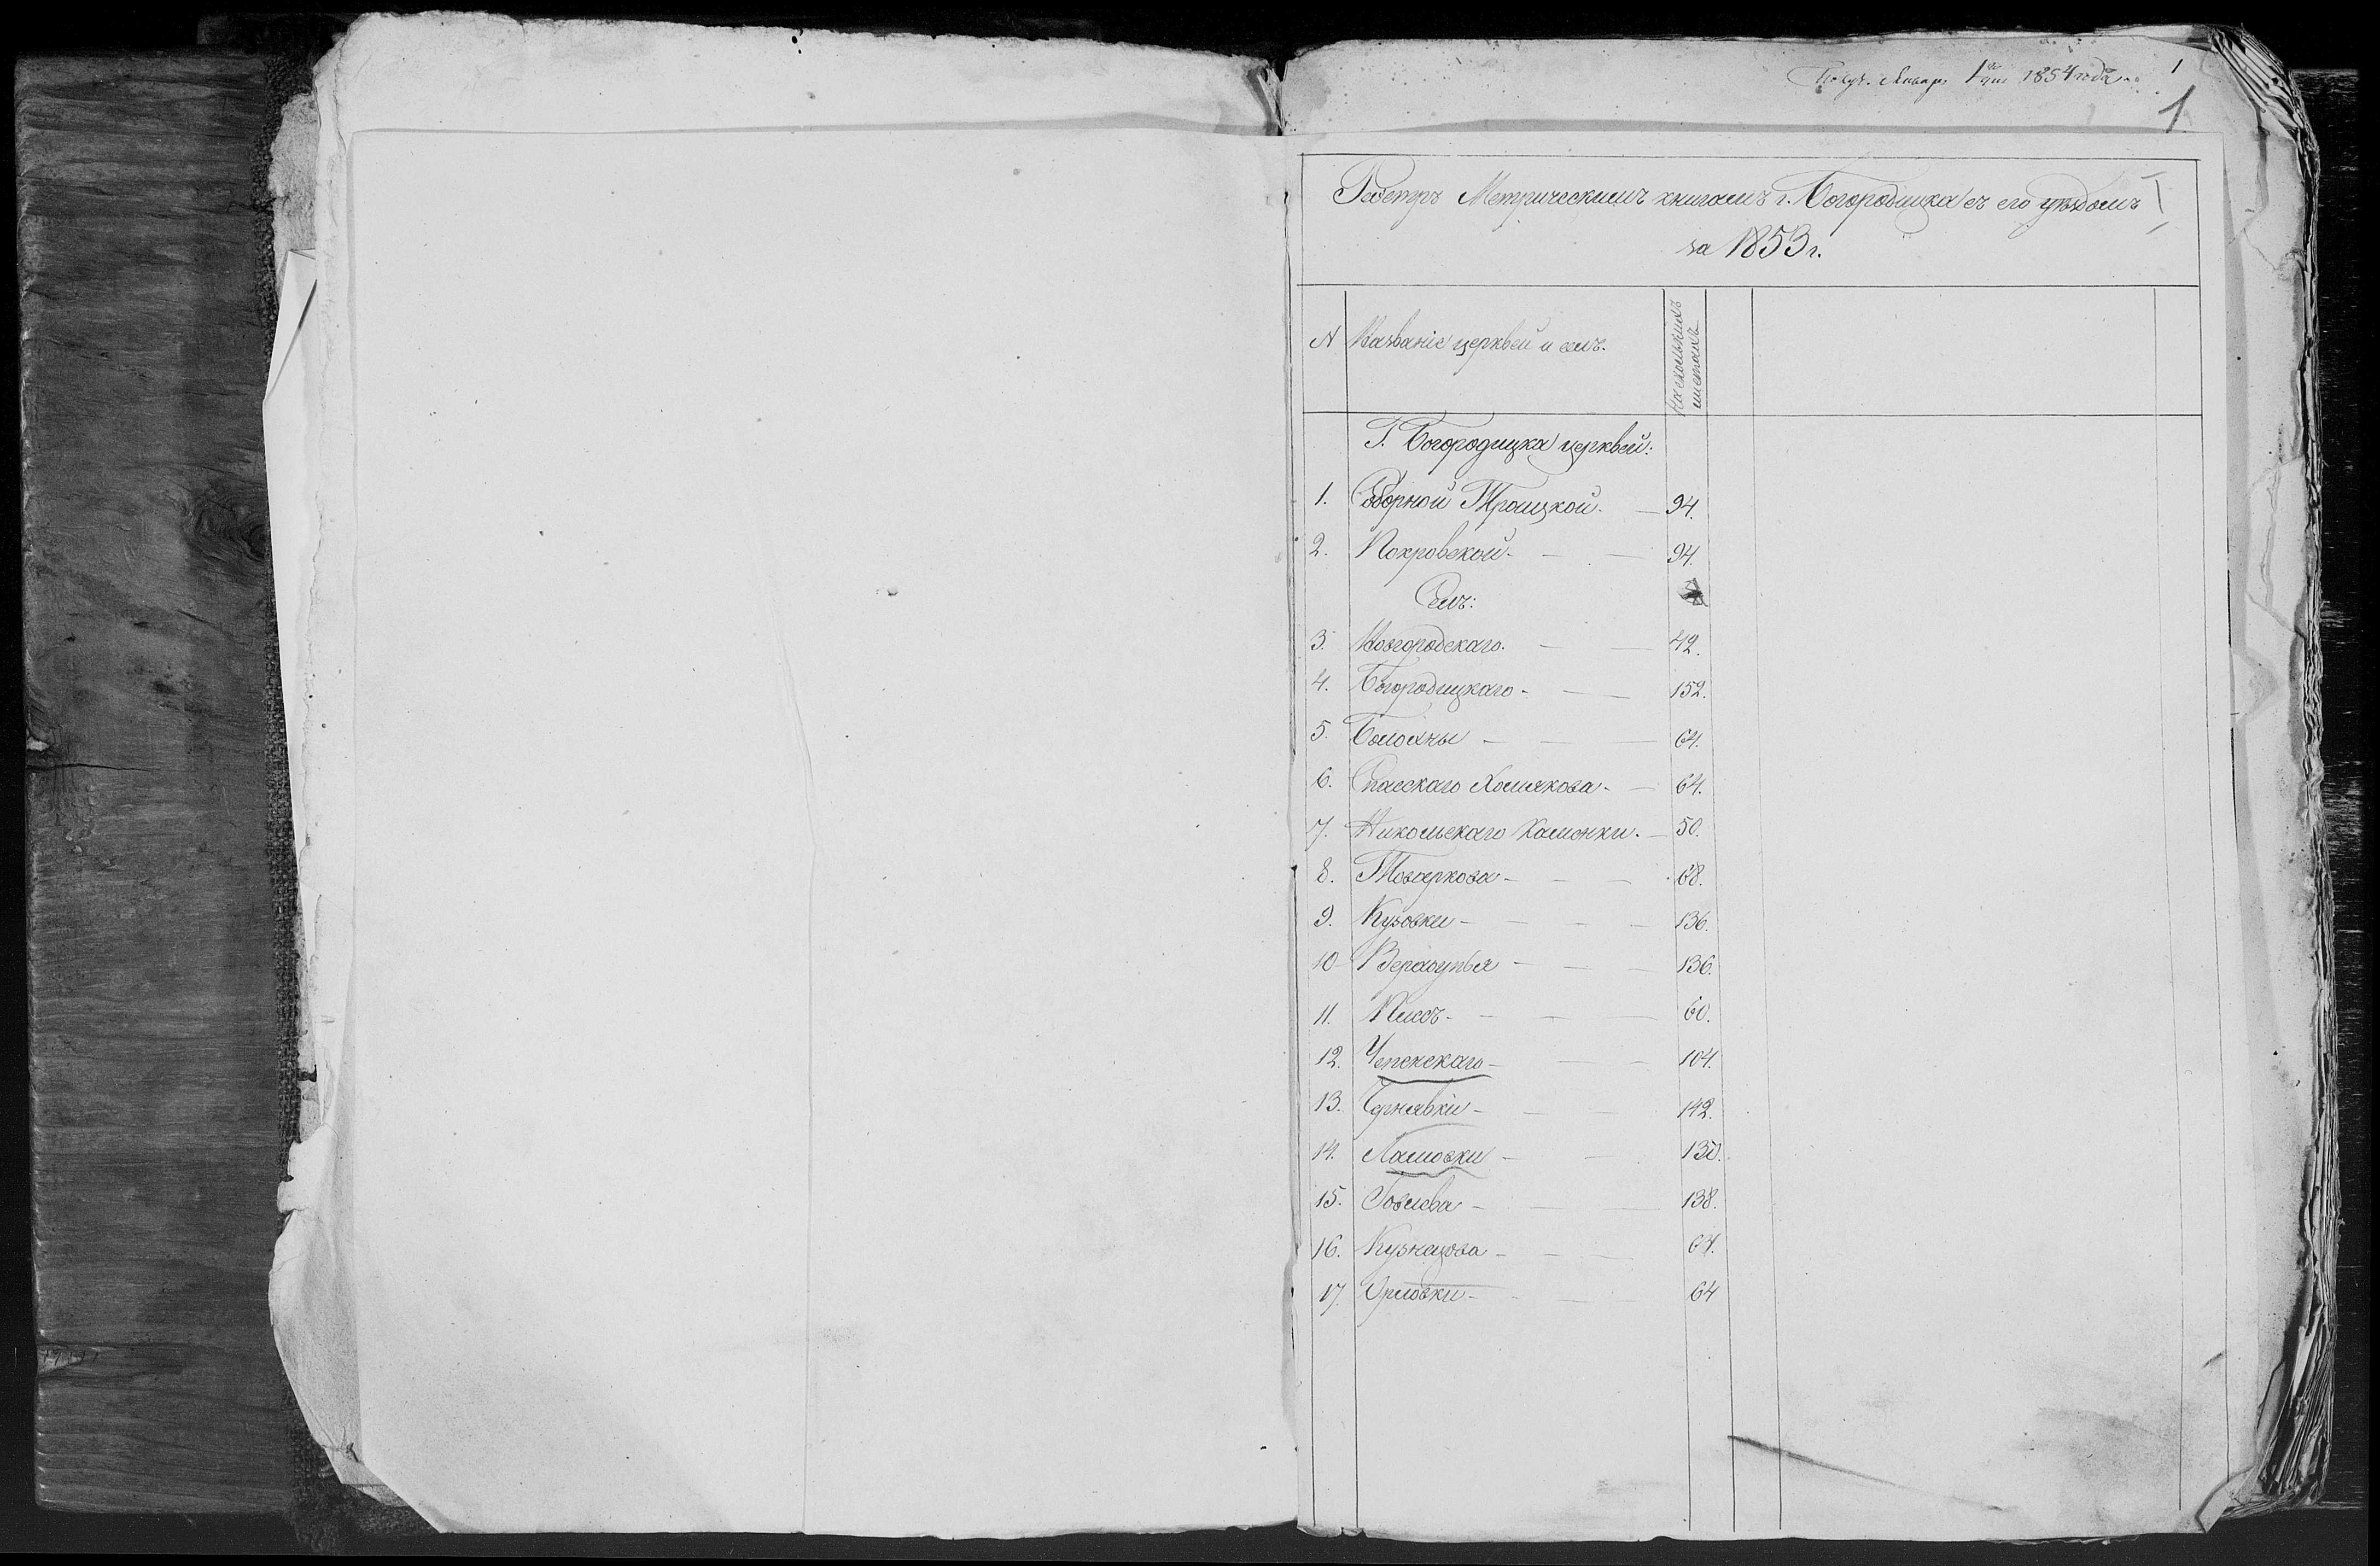 Получ. Января 1 дня 1854 года
1
1
Реестръ Метрическимъ книгамъ г. Богородицка съ его уѣздомъ
за 1853 г.
N Названіе церквей и селъ. На сколькихъ листахъ
Г. Богородицка церквей:
1. Соборной Троицкой. — 94.
2. Покровской — 94.
Селъ:
3. Новгородскаго. — 42.
4. Богородицкаго — 152.
5. Болотны — 64.
6. Спасскаго Хомякова — 64.
7. Никольскаго Каменки. — 50.
8. Товаркова — 68.
9. Кузовки — 136.
10 Верхоупья — 136.
11. — 60.
12. Успенскаго — 104.
13. Чернявки — 142.
14. Ламовки — 130.
15. Іовлева — 138.
16. Кузнецова — 64.
17. Орловки — 64